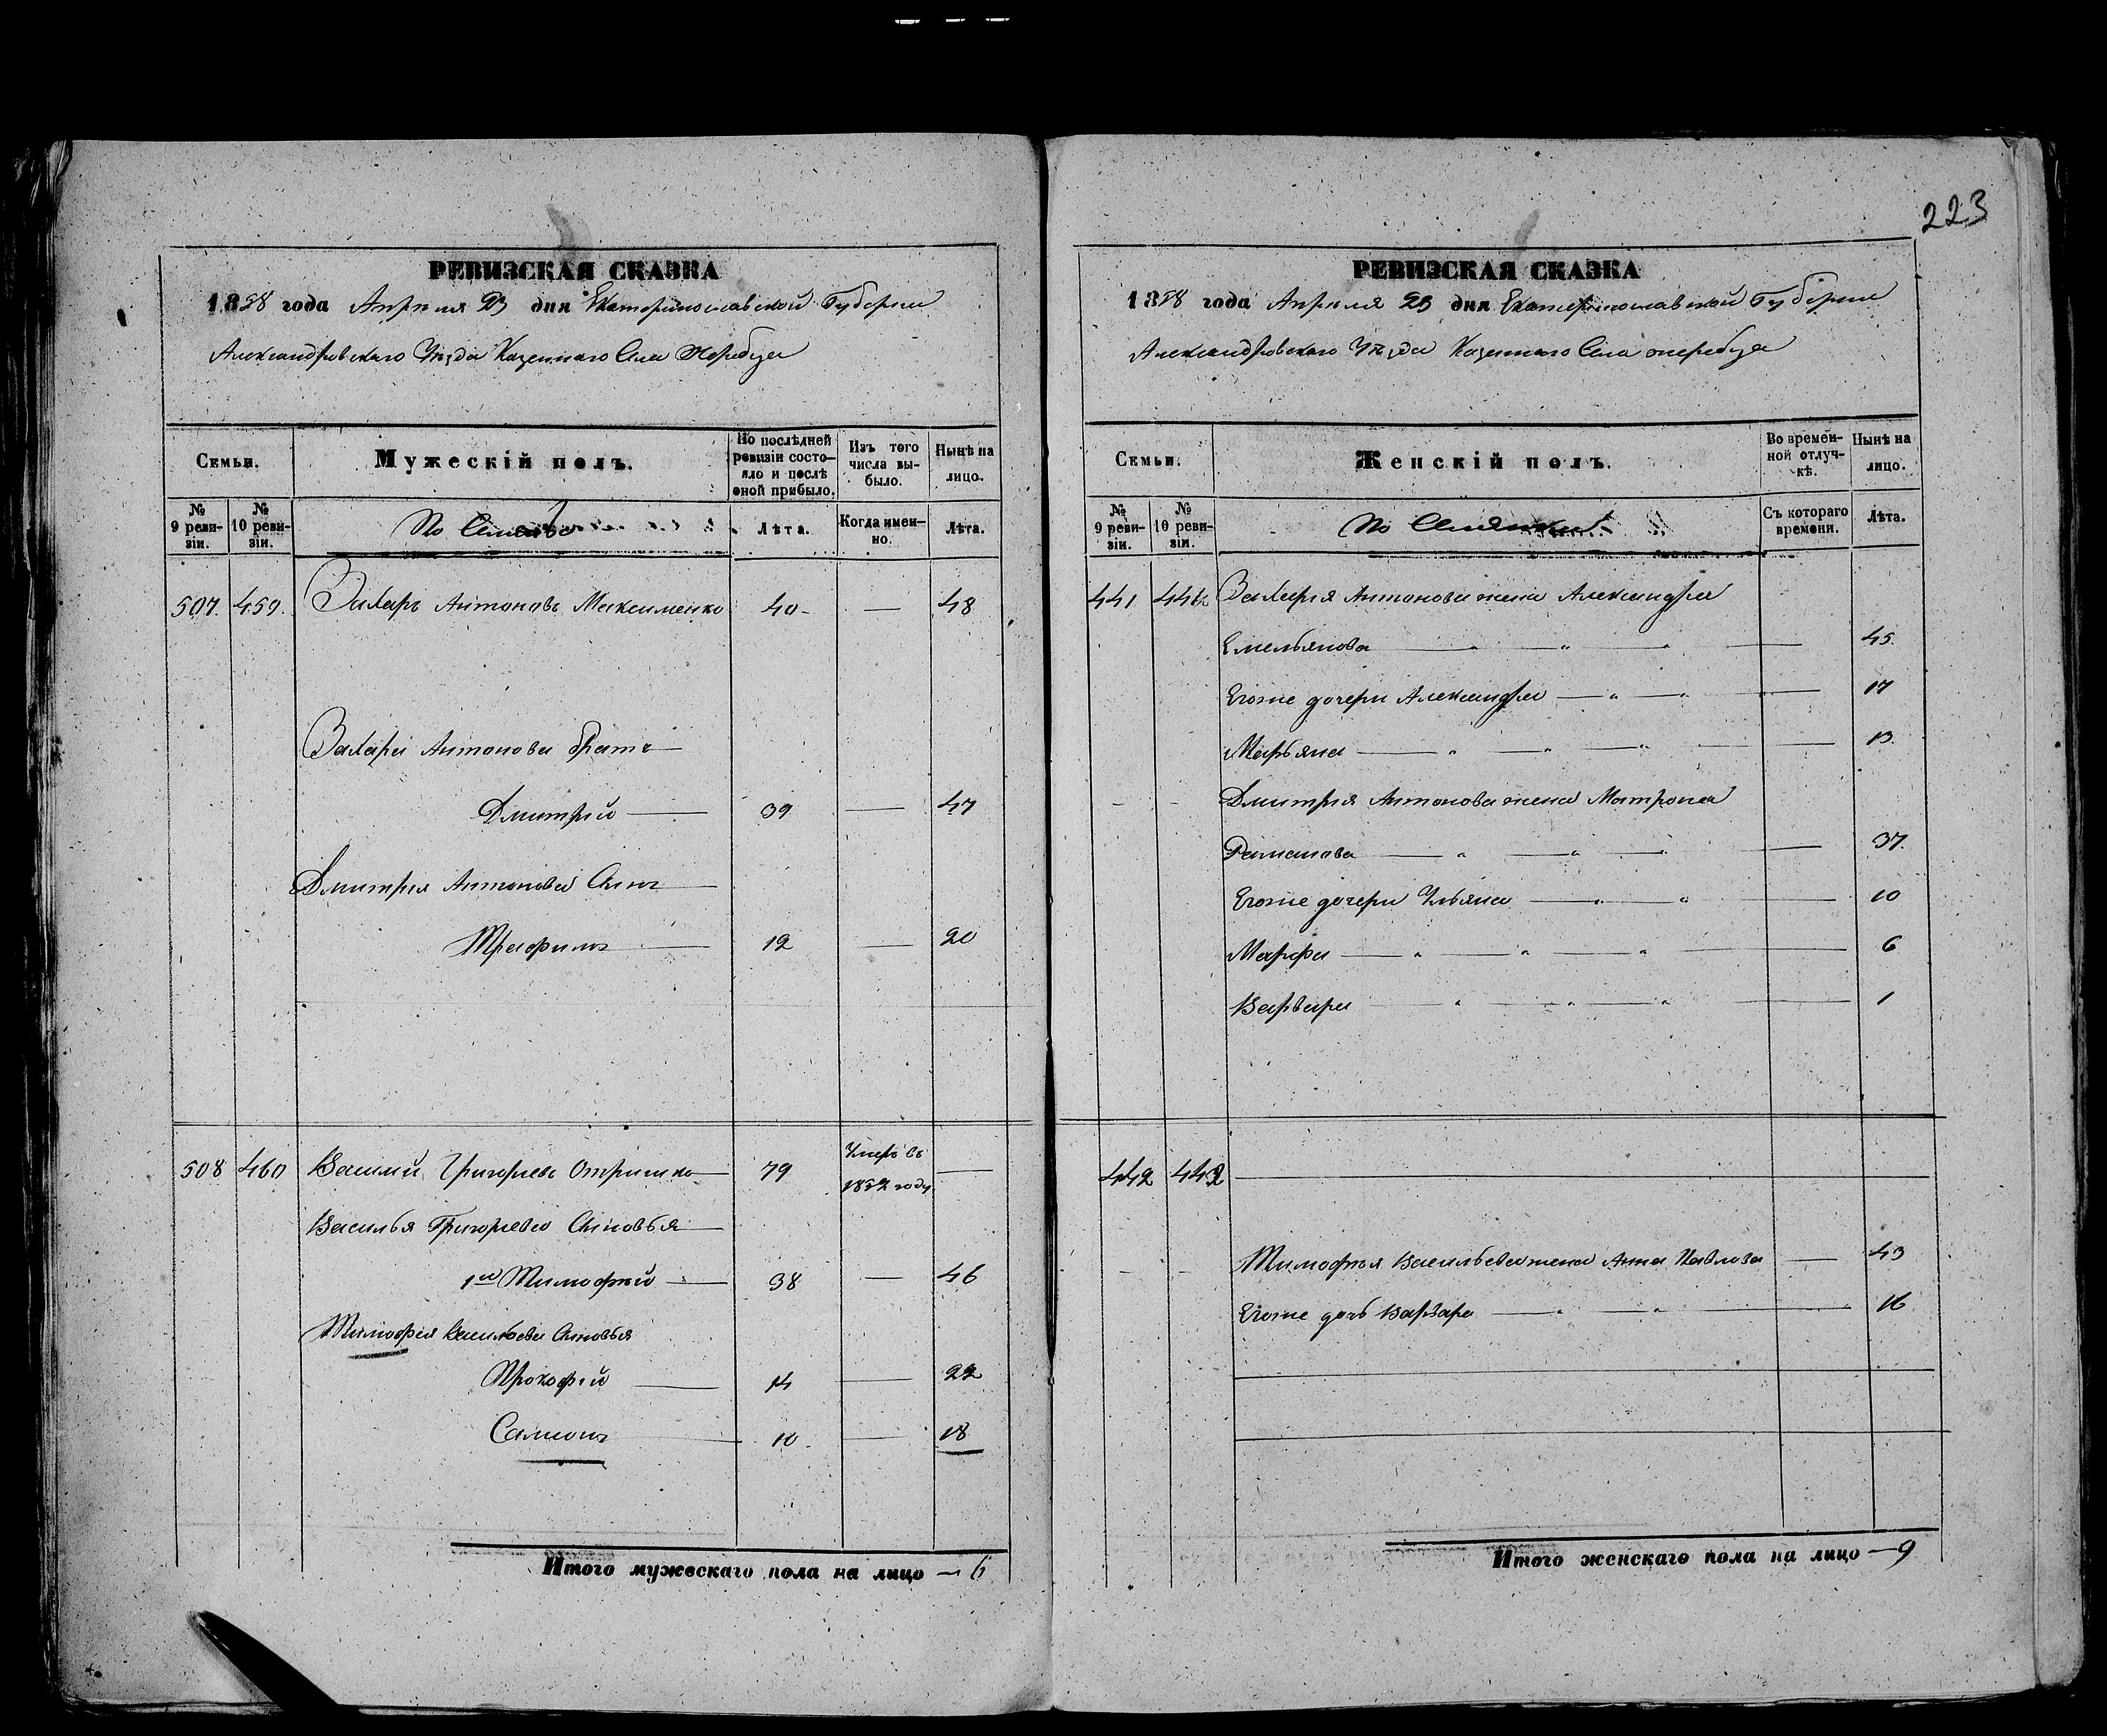 223
РЕВИЗСКАЯ СКАЗКА
1858 года Апреля 23 дня Екатеринославской Губернии
Александровскаго Уезда Казеннаго Села Жеребца
Семьи.
Мужескій полъ.
По послѣдней ревизіи состояло и послѣ оной прибыло.
Изъ того числа выбыло.
Нынѣ на лицо.
№ 9 ревизіи.
№ 10 ревизіи.
Лѣта.
Когда именно.
Лѣта.
507. 459. Захаръ Антоновъ Максименко 40 — 48
Захара Антонова братъ
Дмитрій — 39 — 47
Дмитрія Антонова Сынъ
Трафимъ — 12 — 20
508 460 Василий Григорьевъ Отришко 79 Умеръ въ 1852 году —
Василья Григорьева Сыновья
1й Тимофѣй — 38 — 46
Тимофея Васильева Сыновья
Прокофій — 14 — 22
Самсонъ — 10 — 18
Итого мужескаго пола на лицо — 6
РЕВИЗСКАЯ СКАЗКА
1858 года Апреля 23 дня Екатеринославской Губернии
Александровскаго Уезда Казеннаго Села жеребца
Семьи.
Женскій полъ.
Во временной отлучкѣ.
Нынѣ на лицо.
№ 9 ревизіи.
№ 10 ревизіи.
Съ котораго времени.
Лѣта.
441 Захария Антонова жена Александра
Емельянова — „ — „ — „ — 45.
Егоже дочери Александра — „ — „ — 17
Марьяна — „ — „ — „ — 13.
Дмитрия Антонова жена Матрона
Раманова — „ — „ — „ — 37.
Егоже дочери Ульяна — „ — „ — 10
Марфа — „ — „ — „ — 6
Варвара — „ — „ — „ — 1
442 442 —
Тимофея Васильева жена Анна Павлова — 43
Егоже дочь Варвара — „ — „ — 16
Итого женскаго пола на лицо — 9